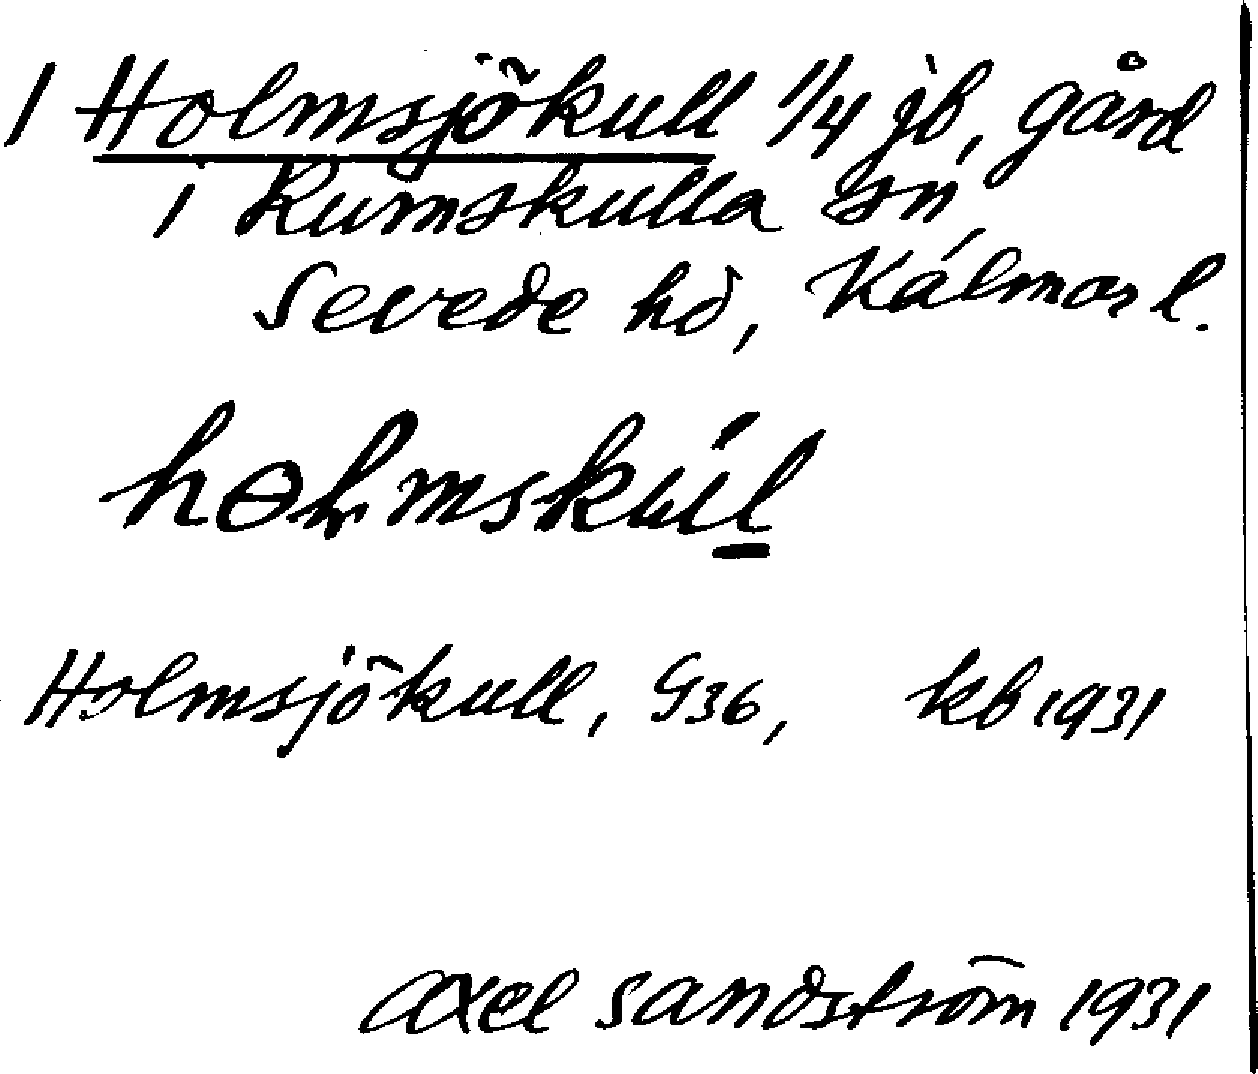 1 Holmsjökull 1/4 jb, gård
i Rumskulla sn,
Sevede hd, Kalmar l.
hɵlmskúl
Holmsjökull, G36, kb 1931
Axel Sandström 1931